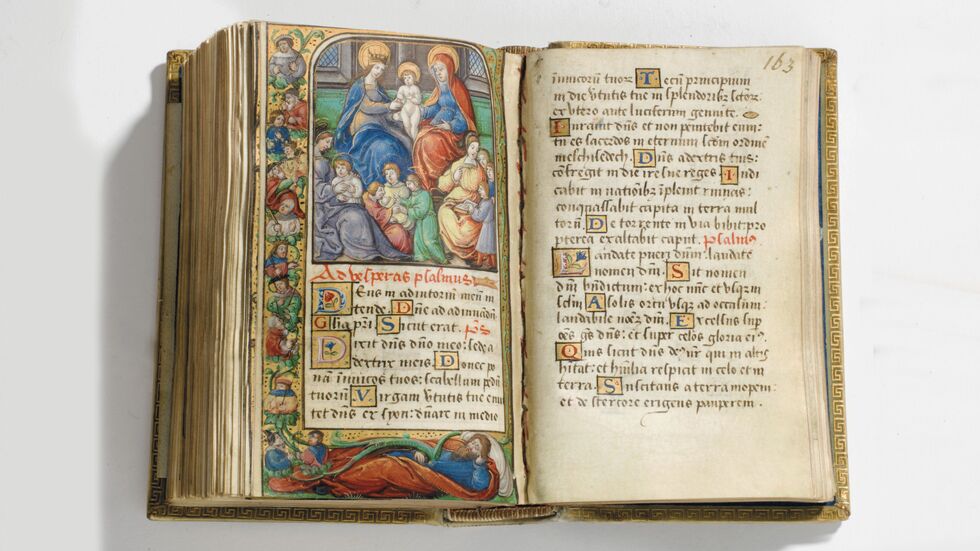 Ad vesperas psalmus
Deus in adiutoriū meū in
tende. Dn̄e ad adiuuādū.
Gl̄ia pr̄i Sicut erat. ps
Dixit dn̄s dn̄o meo: sede a
dextris meis. Donec po
nā inimicos tuos: scabellum pedū
tuorū. Virgam v̄tutis tue emi
tet dn̄s ex syon: dn̄are in medio
163
inimicorū tuorꝝ Tecū principium
in die v̄tutis tue in splendoribꝫ sc̄torꝝ
ex vtero ante luciferum genui te.
Iurauit dn̄s et non penitebit eum:
tu es sacerdos in eternum scd̄m ordinē
melchisedech. Dn̄s a dextris tuis:
cōfregit in die ire sue reges Iudi
cabit in nationibꝫ īplebit ruinas:
conquassabit capita in terra mul
torū. De torrente in via bibit: pro
pterea exaltabit caput. psalmꝰ
Laudate pueri dn̄m: laudate
nomen dn̄i. Sit nomen
dn̄i bn̄dictum: ex hoc nūc et vsqꝫ in
sclm̄ A solis ortu vsqꝫ ad occasum:
laudabile nomē dn̄i. Excelsus sup̄
oēs gē̄s dn̄s: et super celos gloria eiꝰ.
Quis sicut dn̄s deꝰ nr̄ qui in altis
hītat: et humilia respicit in celo et in
terra. Suscitans a terra inopem:
et de stercore erigens pauperem.